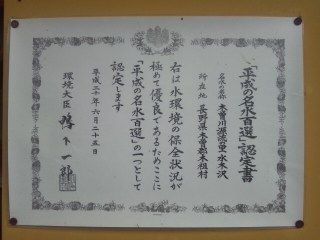 「平成の名水百選」認定書
名水の名称 木曽川源流の里 水木沢
所在地 長野県木曽郡木祖村
右は、水環境の保全状況が
極めて優良であるためここに
「平成の名水百選」の一つとして
認定します
平成二十年六月二十五日
環境大臣 鴨下一郎